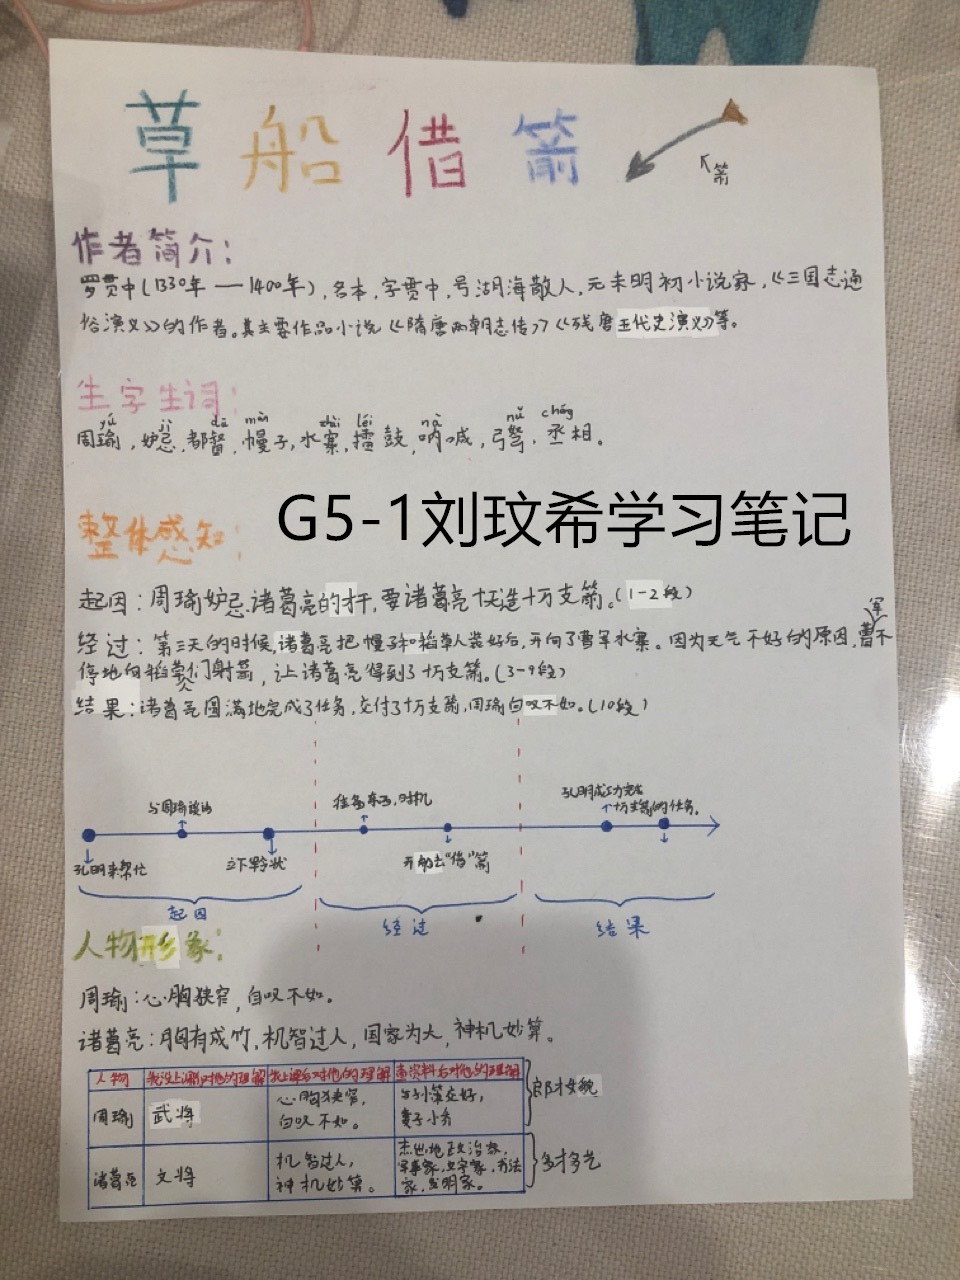 草船借箭
箭
作者简介：
罗贯中(1330年—1400年)，名本，字贯中，号湖海散人，元末明初小说家，《三国志通
俗演义》的作者。其主要作品小说《隋唐两朝志传》《残唐五代史演义》等。
生字生词：
yú jì dū màn zhài léi nà nǔ chéng
周瑜，妒忌，都督，幔子，水寨，擂鼓，呐喊，弓弩，丞相。
整体感知：
G5-1刘玟希学习笔记
起因：周瑜妒忌诸葛亮的才干，要诸葛亮十天造十万支箭。(1-2段)
经过：第三天的时候，诸葛亮把幔子和稻草人装好后，开向了曹军水寨。因为天气不好的原因，曹军不
停地向稻草人们射箭，让诸葛亮得到了十万支箭。(3-9段)
结果：诸葛亮圆满地完成了任务，交付了十万支箭，周瑜自叹不如。(10段)
与周瑜谈论
准备东西，时机
孔明成功完成
十万支箭的任务。
孔明来帮忙
立下军令状
开船去“借”箭
起因
经过
结果
人物形象：
周瑜：心胸狭窄，自叹不如。
诸葛亮：胸有成竹，机智过人，国家为大，神机妙算。
人物 我没上课前对他的理解 我上课后对他的理解 查资料后对他的理解
周瑜 武将 心胸狭窄， 与孙策交好，
自叹不如。 妻子小乔
郎才女貌
诸葛亮 文将 机智过人， 杰出地政治家，
神机妙算。 军事家，文学家，书法
家，发明家。
多才多艺